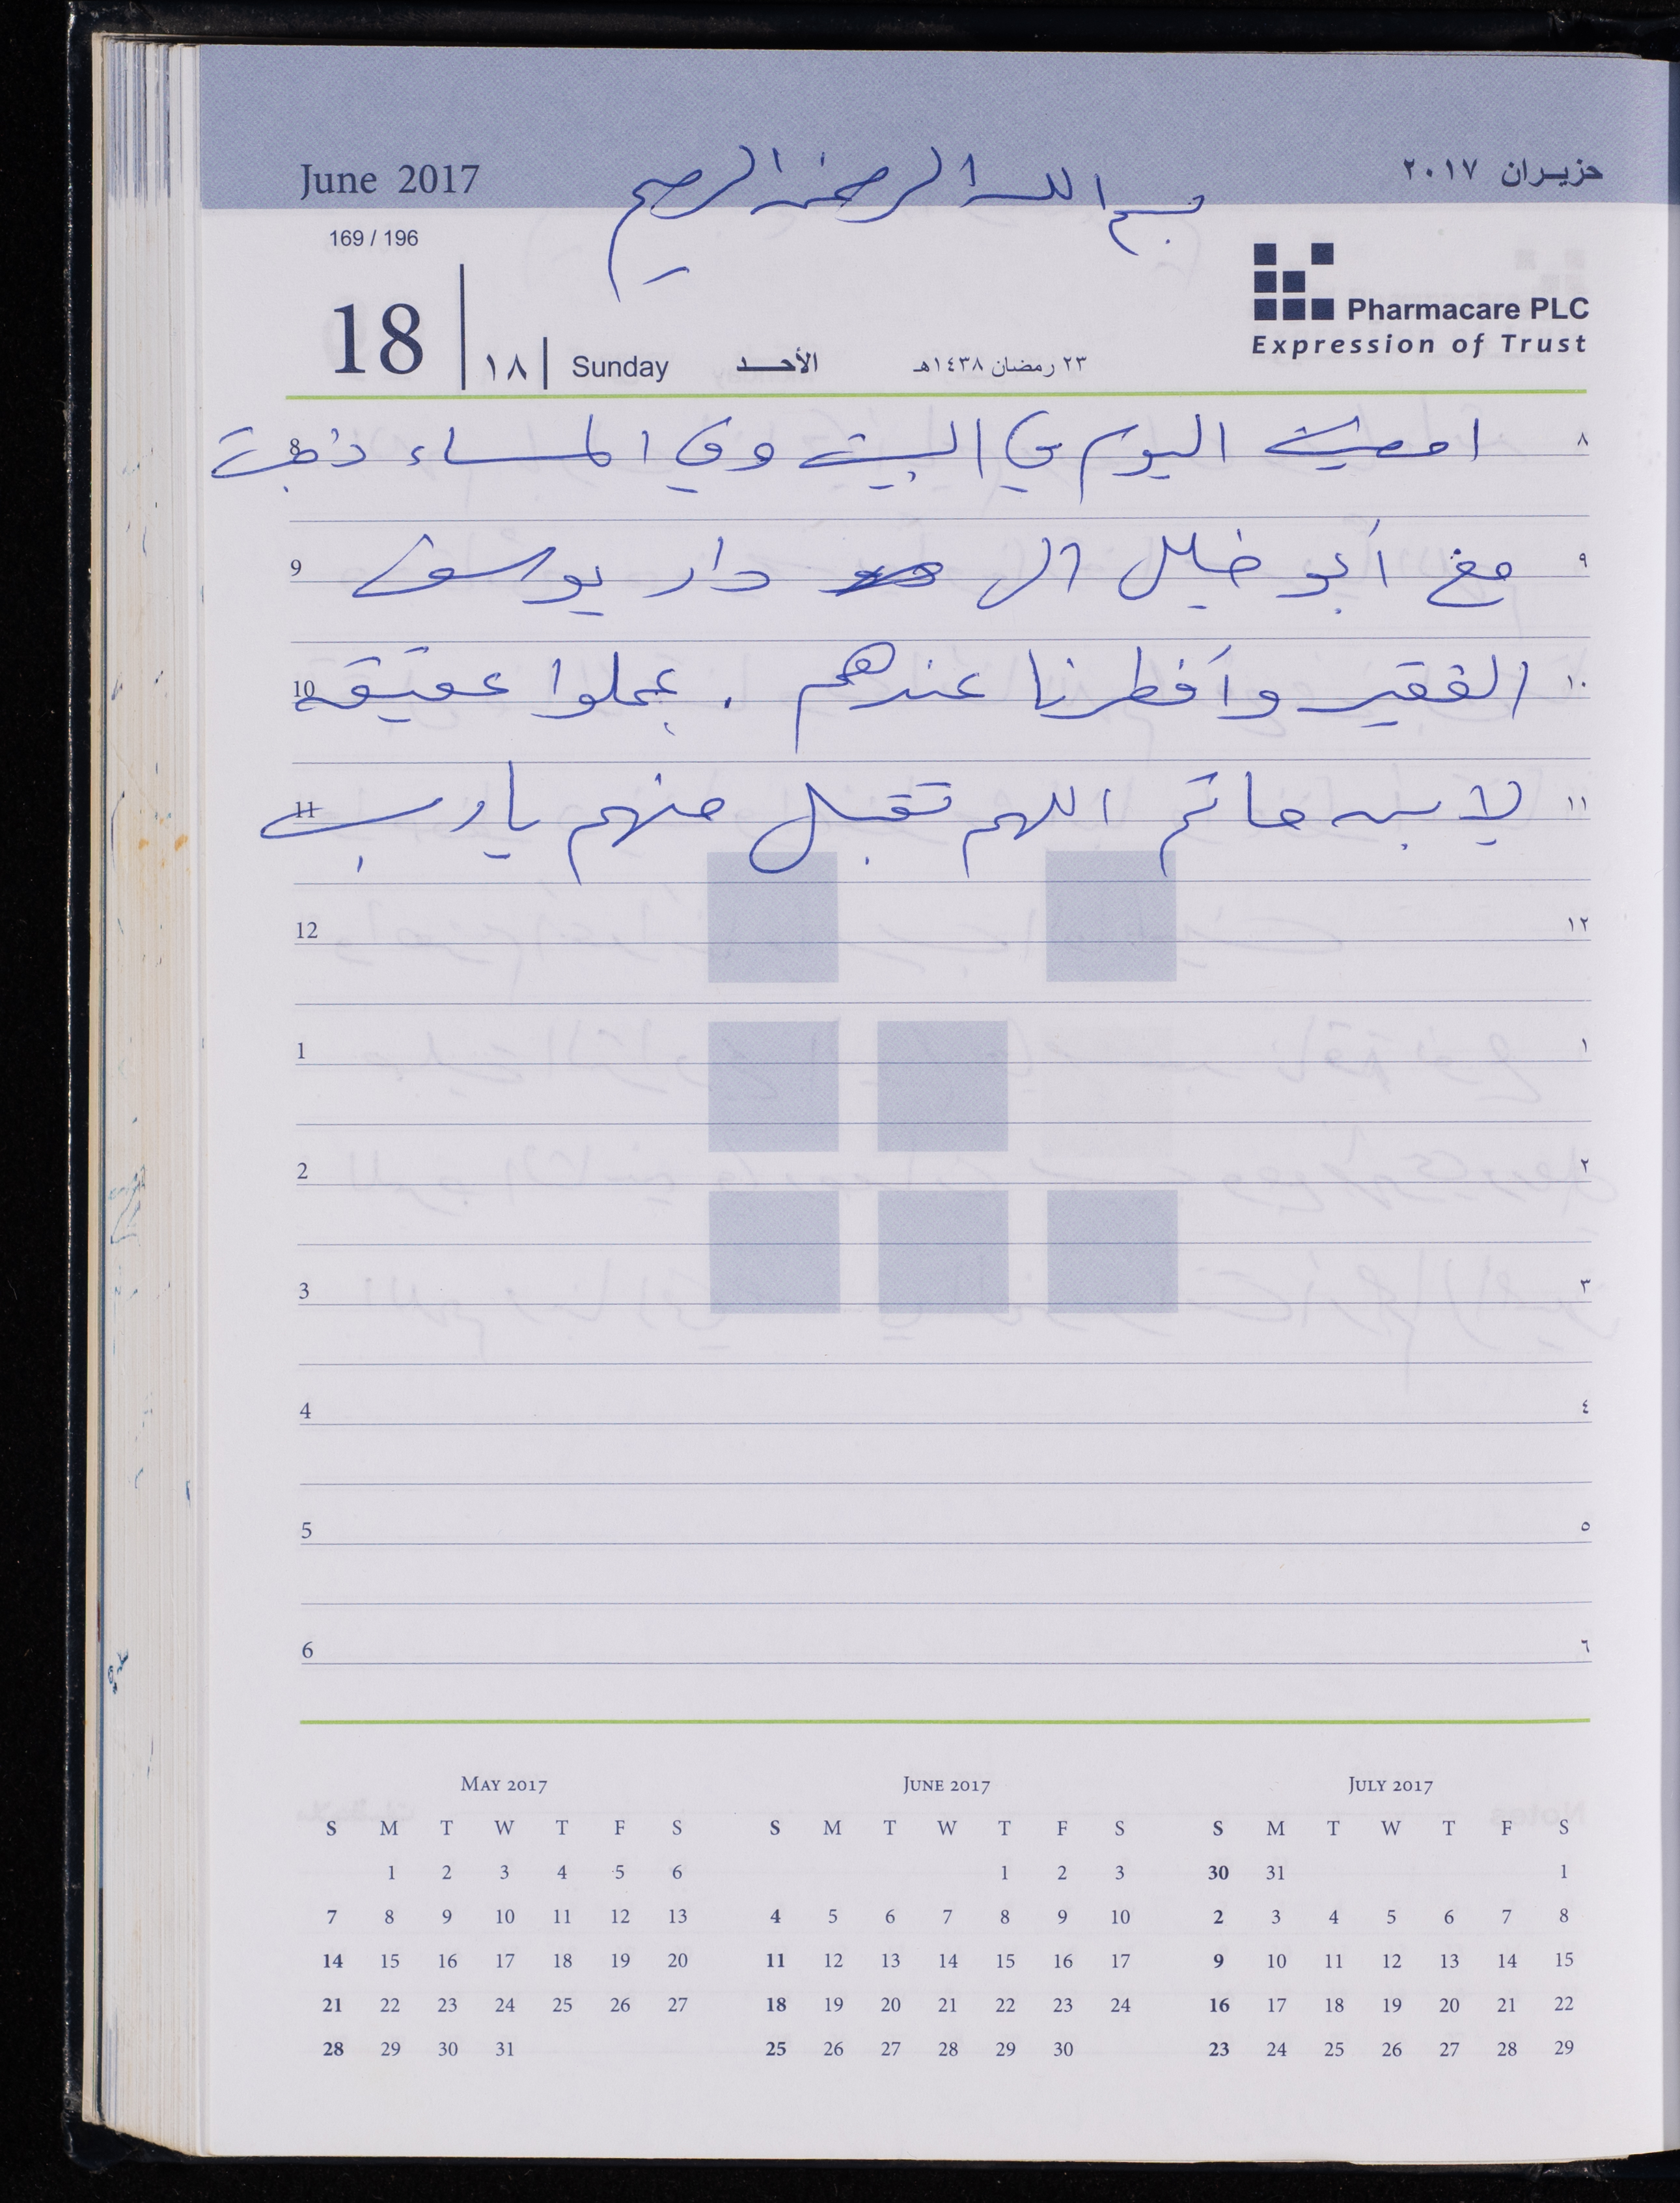 June 2017
بسم الله الرحمن الرحيم
حزيـران ٢٠١٧
169 / 196
18 | ١٨ | Sunday الأحـد ٢٣ رمضان ١٤٣٨هـ
Pharmacare PLC
Expression of Trust
8 امضيت اليوم في البيت وفي المساء ذهبت ٨
9 مع أبو خليل الى دار يوسف ٩
10 الفقير وأفطرنا عندهم . عملوا عقيقه ١٠
11 لابنه حاتم اللهم تقبل منهم يا رب ١١
12 ١٢
1 ١
2 ٢
3 ٣
4 ٤
5 ٥
6 ٦
MAY 2017
S M T W T F S
1 2 3 4 5 6
7 8 9 10 11 12 13
14 15 16 17 18 19 20
21 22 23 24 25 26 27
28 29 30 31
JUNE 2017
S M T W T F S
1 2 3
4 5 6 7 8 9 10
11 12 13 14 15 16 17
18 19 20 21 22 23 24
25 26 27 28 29 30
JULY 2017
S M T W T F S
30 31 1
2 3 4 5 6 7 8
9 10 11 12 13 14 15
16 17 18 19 20 21 22
23 24 25 26 27 28 29